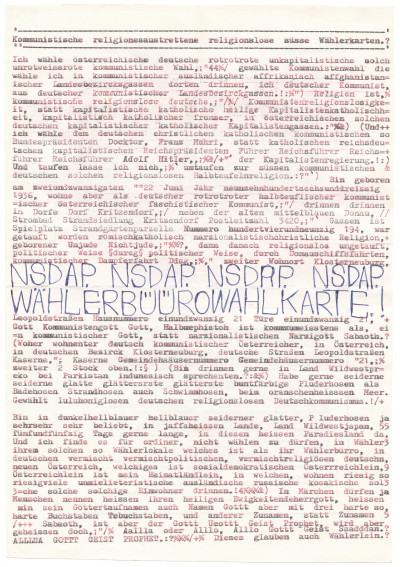 Kommunistische religionsaustrettene religionslose süsse Wählerkarten.?
Ich wähle österreichische deutsche rotrotrote unkapitalistische solch
unrotweissrote kommunistische Wahl,;"44%/ gewählte Kommunistenwahl die
wähle ich in kommunistischer ausländischer affrikanisch affghanistan-
ischer Landesbezirksgassen dorten drinnen, ich deutscher Kommunist,
aus deutscher kommunistischer Landesbezirkgassen.!:%") Religion ist,
kommunistische religionslose deutsche,;"/%/ Kommunistenreligionslosigke-
it, statt kapitalistische katholische heilige Kapitalistenkatholischh-
eit, kapitalistisch katholischer frommer, in österreichischen solchen
deutschen kapitalistischer katholischer Kapitalistengassen.
wähle ich dem deutschen christlichen katholischen kommunistischen so
Bundespräsidenten Doektor, Franz Muhri, statt katholischen reichsdeu-
tschen kapitalistischen Reichspräsidenten Führer Reichführer Reichs-
führer Reichsführer Adolf Hitler, der Kapitalistenregierung.!:)
Und taufen lasse ich nich, umtaufen zur süssen kommunistischen
deutschen solchen religionslosen Halbteufelnreligion.:?"") Bin geboren
am zweiundzwanzigsten ""22 Juni Jahr neunzehnhundertsechsunddreissig
1936, wohne aber als deutscher rotrotroter halbteuflischer kommunist
-ischer österreichischer faschistischer Kommunist,;"/ drinnen drinnen
in Dorfe Dorf Kritzendorf,;/ neben der alten mittelblauen Donau,;/
Strombad Strandsiedlung, Kritzendorf Postleitzahl 3420,;" Gassen ist
Spielplatz Strandgartenparzelle Nummero hundertvierundneunzig 194, war
getauft worden römischkatholisch marsionalistischchristliche Religion,
geborener Unjude Nichtjude,;"%0%?, dann danach religionslos umgetauft,
politischer Weise §dureg§ politischer Weise, durch Donauschiffahrten,
kommunistischer Dampferfahrt Ddsg,:%," zweiter Wohnort Klosterneuburg
NSDAP, NSDAP, NSDAP, NSDAP,
WÄHLERBÜÜROWAHLKARTE.!;
Leopoldstraßen Hausnummero einundzwanzig 21 Türe einundzwanzig
Gott Kommunistengott Gott, Halbmephistoh ist kommzumeistens als, ei
=n kommunistischer Gott, statt narsionalistischen Narsigott Sabaoth.?
(Woher wohnenter deutsch kommunistischer Österreicher, in Österreich,
in deutschen Bezirck Klosterneuburg, deutsche Straßen Leopoldstraßen
Kaserne,"; Kaserne Gemeindehäusernummero Gemeindehäusernummero "21,;%
zweiter 2 Stock oben.!:§ ) (Bin drinnen gerne in Land Wildwestpr-
ero bei Parkistan indumesisch sprechenten.?:) Habe gerne seiderne
seiderne glatte glättersrste glätterste buntfärbige Pluderhosen als
Badehosen Strandhosen auch Schwimmhosen, beim orantschenheissen Meer.
Gewählt luluhoniglosen deutschen religionslosen Deutschkommunismus.!/+
Bin in dunkelhellblauer hellblauer seiderner glatter, Pluderhosen ja
sehrsehr sehr beliebt, in jaffaheissen Lande, Land Wildwestjapan, 55
fünfundfünfzig Tage gerne lange, in diesen heissen Paradiesland da,
Und ich finde es für ordiner, nicht wählen zu dürfen, in Wähler9
ihrem solchen so Wählerlokale welches ist als ihr Wählerbürro, in
deutschen vermisch vermischtpolitischen, vermischtreligiösen deutsch,
neuen Österreich, welchiges ist sozialdemokratischen Österrreichlein,9
Österreichlein ist mein Heimathäftlein, in welchen, wohnen riesig zu
riesigviele unmielleteristische ausländische russische kosakische so15
3=che solche solchige Einwohner drinnen.!4%%%2) In Märchen dürfen ja
Menschen nennen heissen ihren heiligen Ewigkeitenleherrgott, heissen
min sein Göttertaufnamen auch Namen Gottt aber mit drei harte so,
harte Buchstaben Tebuchstaben, und anderer Zunamen, statt Zunamen 5
/+++ Sabaoth, ist aber der Gottt Geottt Geist Prophet, wird aber
geheissen doch.:"/% Aallla oder Alllo, Alllo Gottt Geist Ssaddda.?
ALLLJA GOTTT GEIST PROPHET.:?%%%/+% Dieses glauben auch Wählerlein.?